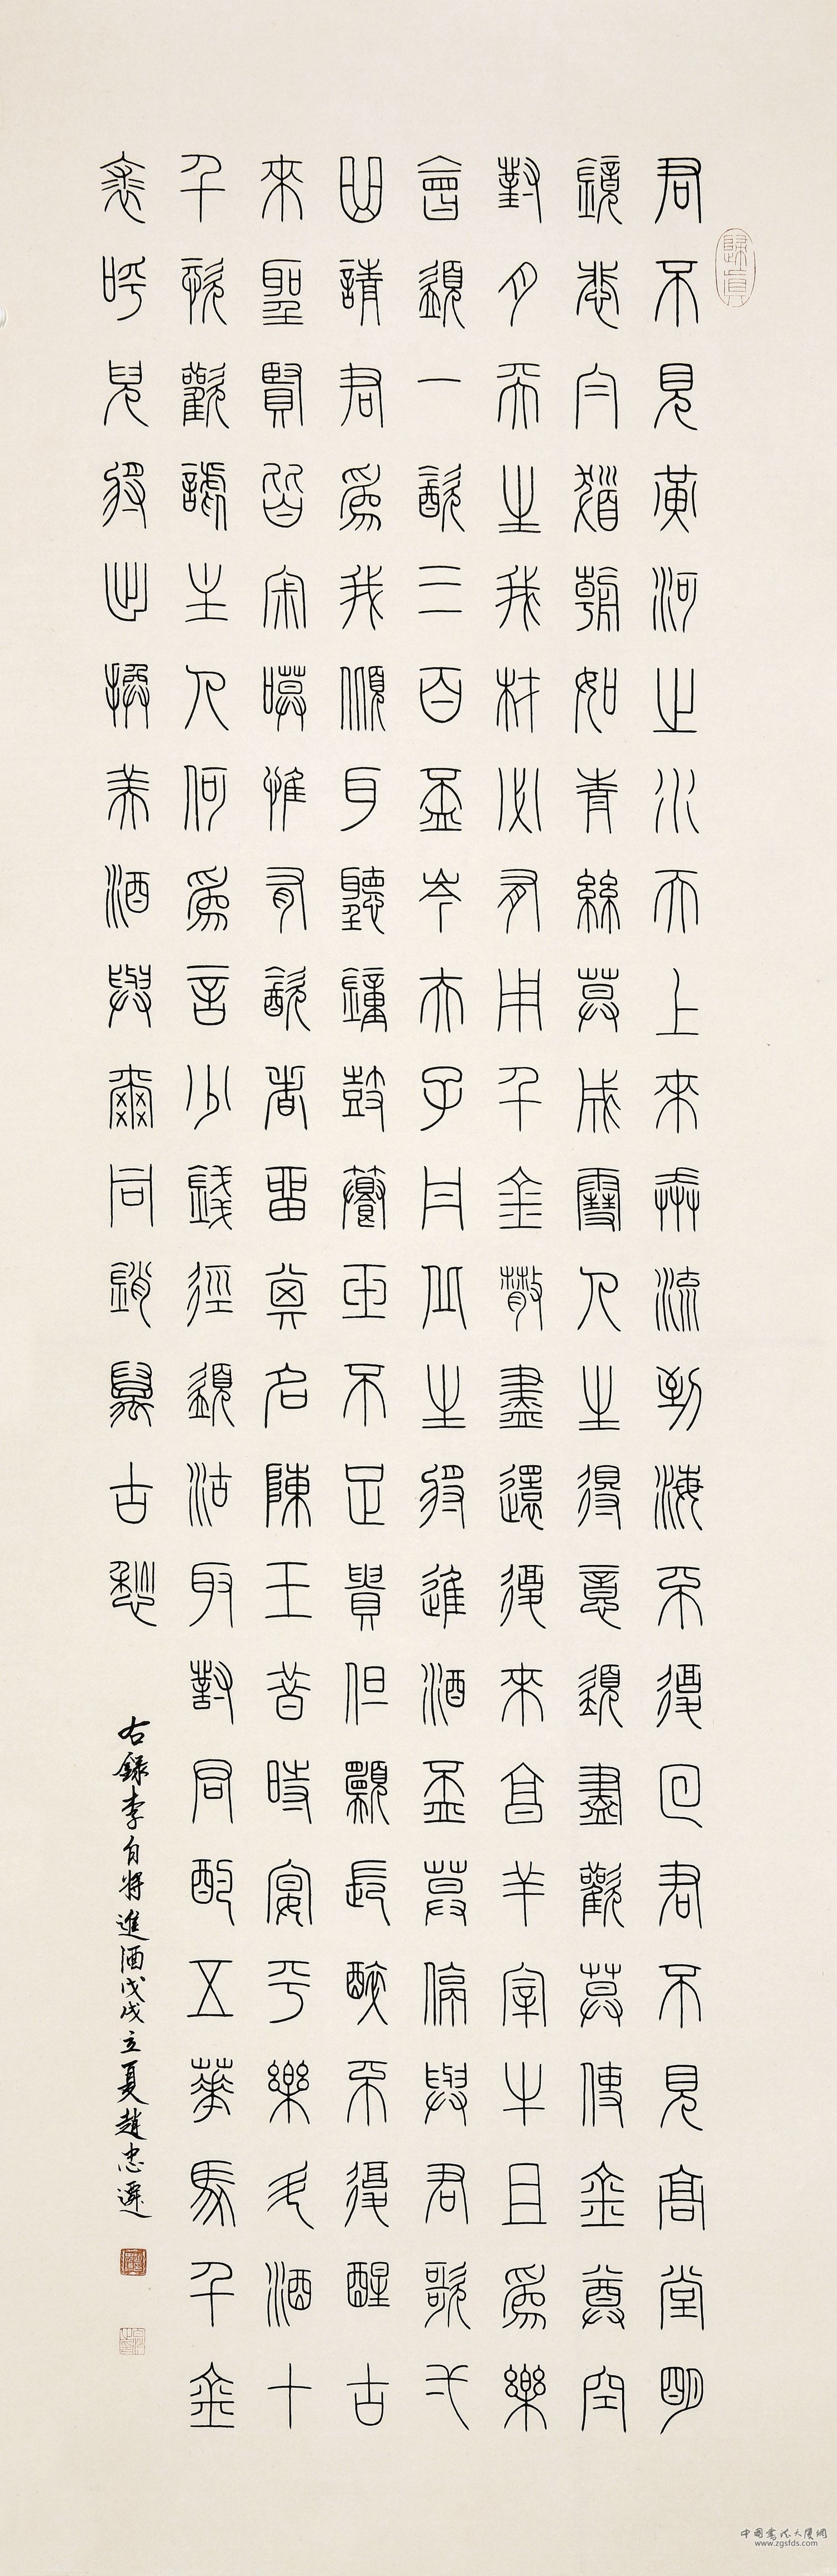 歸真
君不見黃河之水天上來奔流到海不復回君不見高堂明
鏡悲白髮朝如青絲莫成雪人生得意須盡歡莫使金尊空
對月天生我材必有用千金散盡還復來亯羊宰牛且為樂
會須一飲三百杯岑夫子丹丘生將進酒杯莫停與君歌弌
曲請君為我傾耳聽鐘鼓饌玉不足貴但願長醉不復醒古
來聖賢皆寂寞惟有飲者留其名陳王昔時宴平樂斗酒十
千恣歡謔主人何為言少錢徑須沽取對君酌五華馬千金
裘呼兒將出換美酒與爾同銷萬古愁
右錄李白將進酒戊戌立夏趙忠
中國書法大廈網
www.zgsfds.com